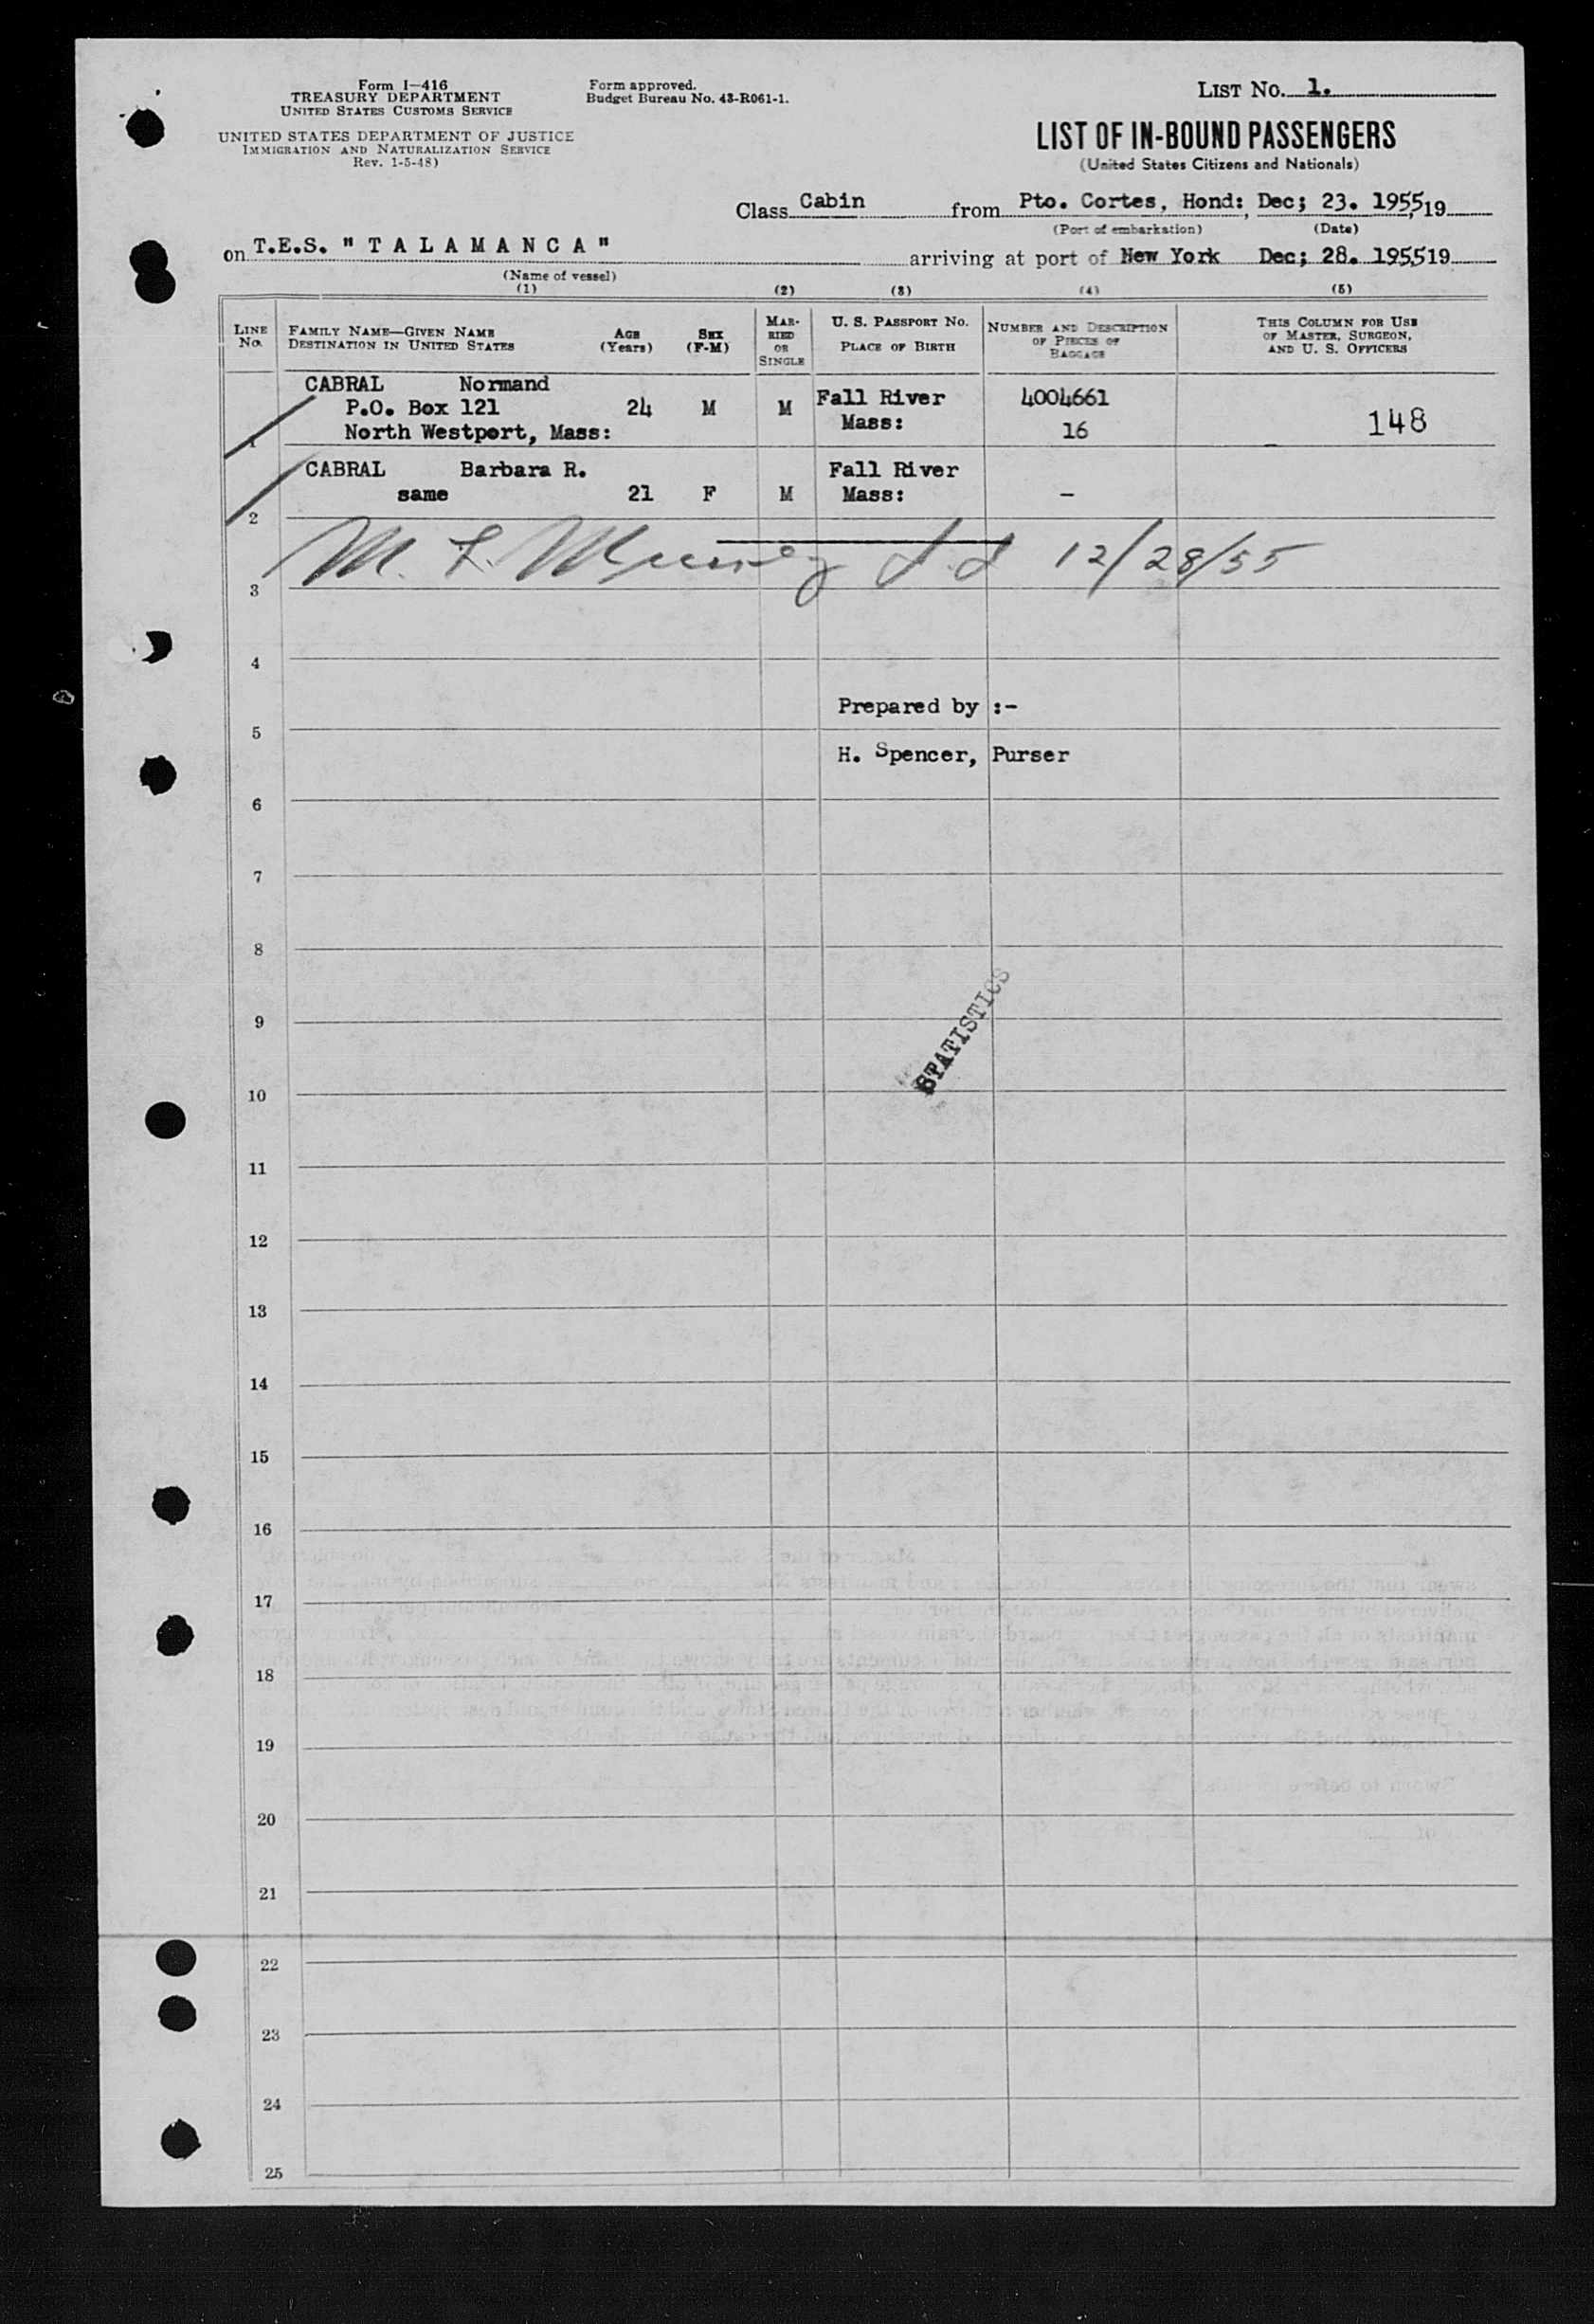 Form I-416
TREASURY DEPARTMENT
UNITED STATES CUSTOMS SERVICE
UNITED STATES DEPARTMENT OF JUSTICE
IMMIGRATION AND NATURALIZATION SERVICE
Rev. 1-5-48)
Form approved.
Budget Bureau No. 43-R061-1.
LIST NO. 1.
LIST OF IN-BOUND PASSENGERS
(United States Citizens and Nationals)
Class Cabin from Pto. Cortes, Hond:, Dec; 23. 1955, 19
(Port of embarkation) (Date)
on T.E.S. " T A L A M A N C A " arriving at port of New York Dec; 28. 1955, 19
(Name of vessel)
(1) (2) (3) (4) (5)
LINE No. FAMILY NAME—GIVEN NAME DESTINATION IN UNITED STATES AGE (Years) SEX (F-M) MARRIED OR SINGLE U. S. PASSPORT NO. PLACE OF BIRTH NUMBER AND DESCRIPTION OF PIECES OF BAGGAGE THIS COLUMN FOR USE OF MASTER, SURGEON, AND U. S. OFFICERS
CABRAL Normand
P.O. Box 121 24 M M Fall River 4004661
1 North Westport, Mass: Mass: 16 148
CABRAL Barbara R. Fall River
same 21 F M Mass: -
2
12/28/55
3
4
Prepared by :-
5
H. Spencer, Purser
6
7
8
9
STATISTICS
10
11
12
13
14
15
16
17
18
19
20
21
22
23
24
25